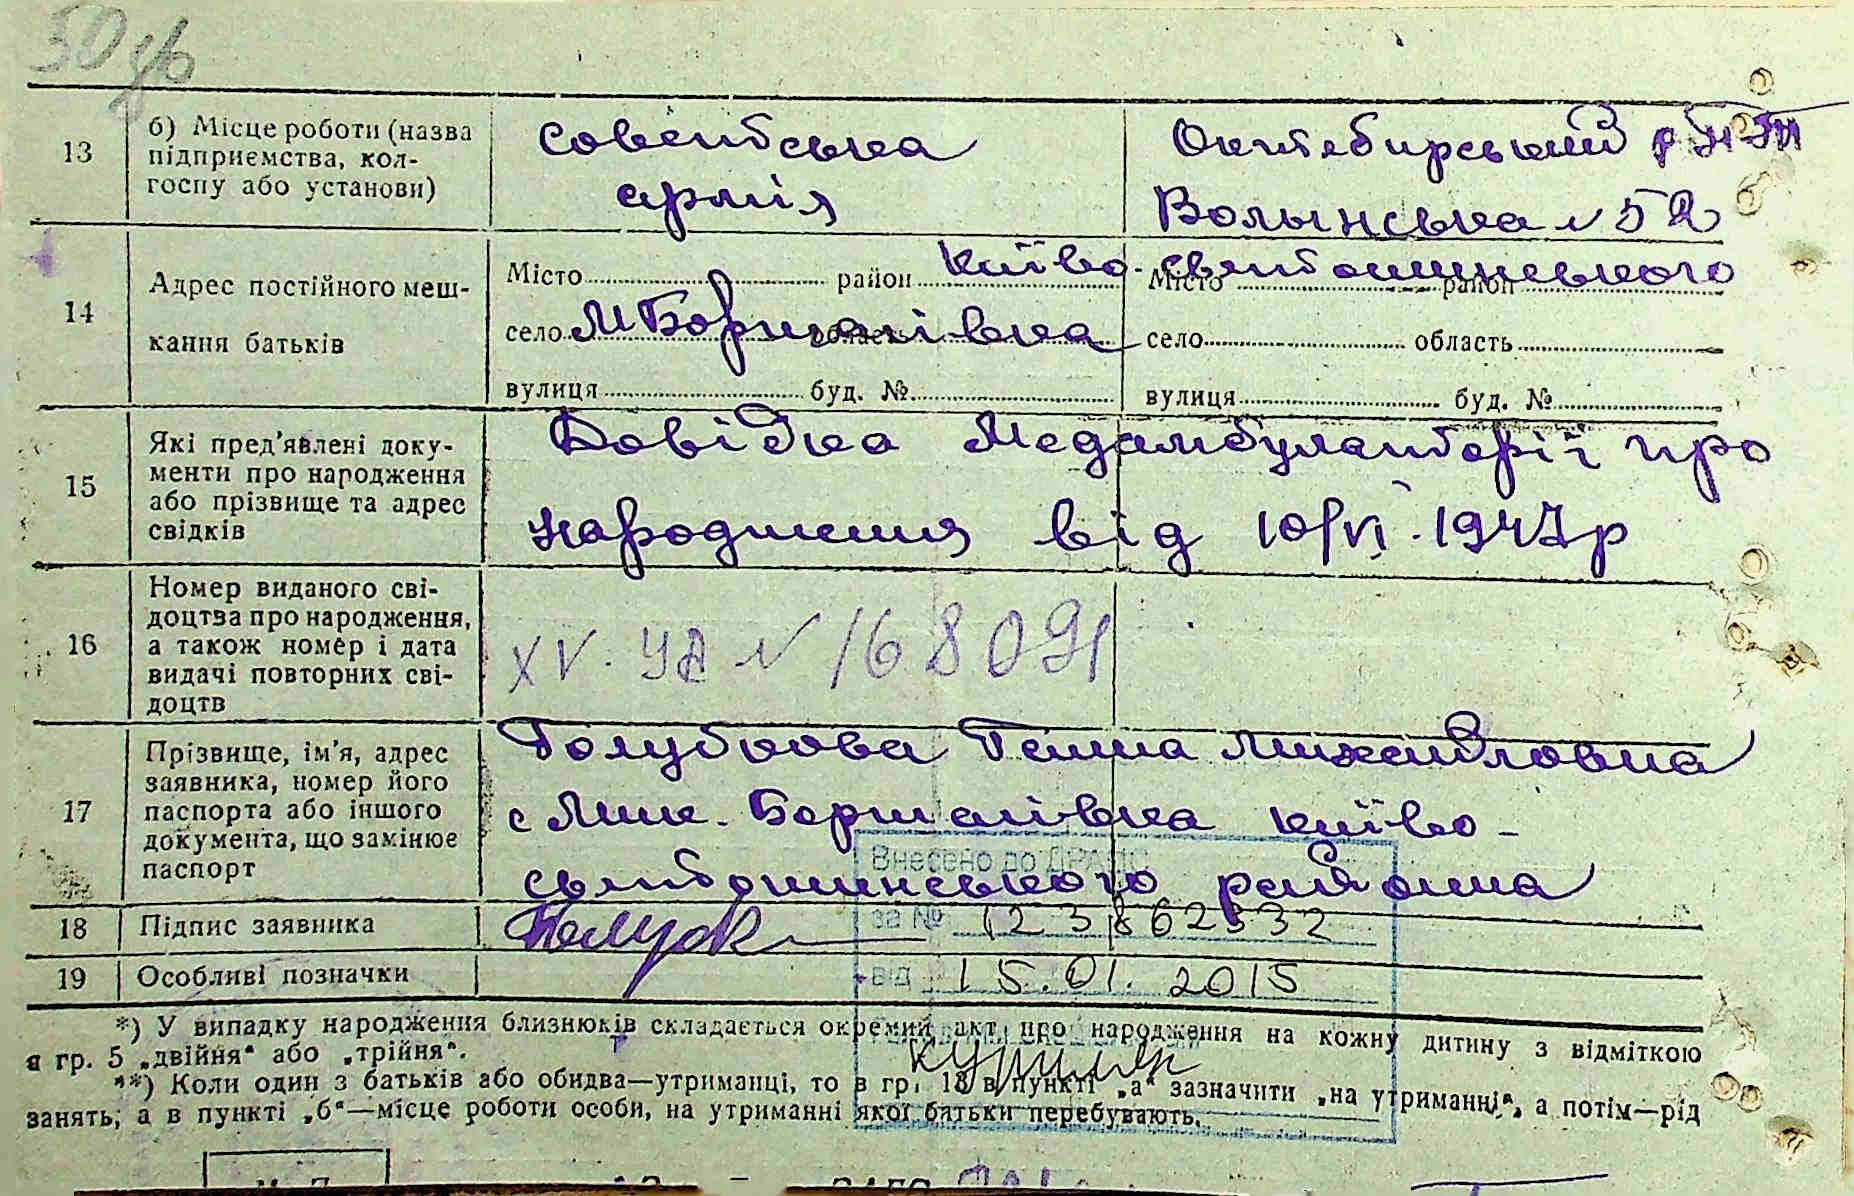 50
13
б) Місце роботи (назва
підприємства, кол-
госпу або установи)
Совєтська
армія
Октябирський
Волынська № 52
14
Адрес постійного меш-
кання батьків
Місто район Київо-святошинського
село М Борщагівка область
вулиця буд. №
Місто район
село область
вулиця буд. №
15
Які пред'явлені доку-
менти про народження
або прізвище та адрес
свідків
Довідка Медамбулаторії про
народження від 10/VI. 1947р
16
Номер виданого сві-
доцтва про народження,
а також номер і дата
видачі повторних сві-
доцтв
XV. УА № 168091
17
Прізвище, ім'я, адрес
заявника, номер його
паспорта або іншого
документа, що замінює
паспорт
Ганна Михайловна
с Мик. Борщагівка Київо-
святошинського района
18
Підпис заявника
19
Особливі позначки
Внесено до ДРАЦС
за № 123862332
від 15.01.2015
*) У випадку народження близнюків складається окремий акт про народження на кожну дитину з відміткою
в гр. 5 „двійня“ або „трійня“.
**) Коли один з батьків або обидва—утриманці, то в гр. 13 в пункті „а“ зазначити „на утриманні“, а потім—рід
занять, а в пункті „б“—місце роботи особи, на утриманні якої батьки перебувають.